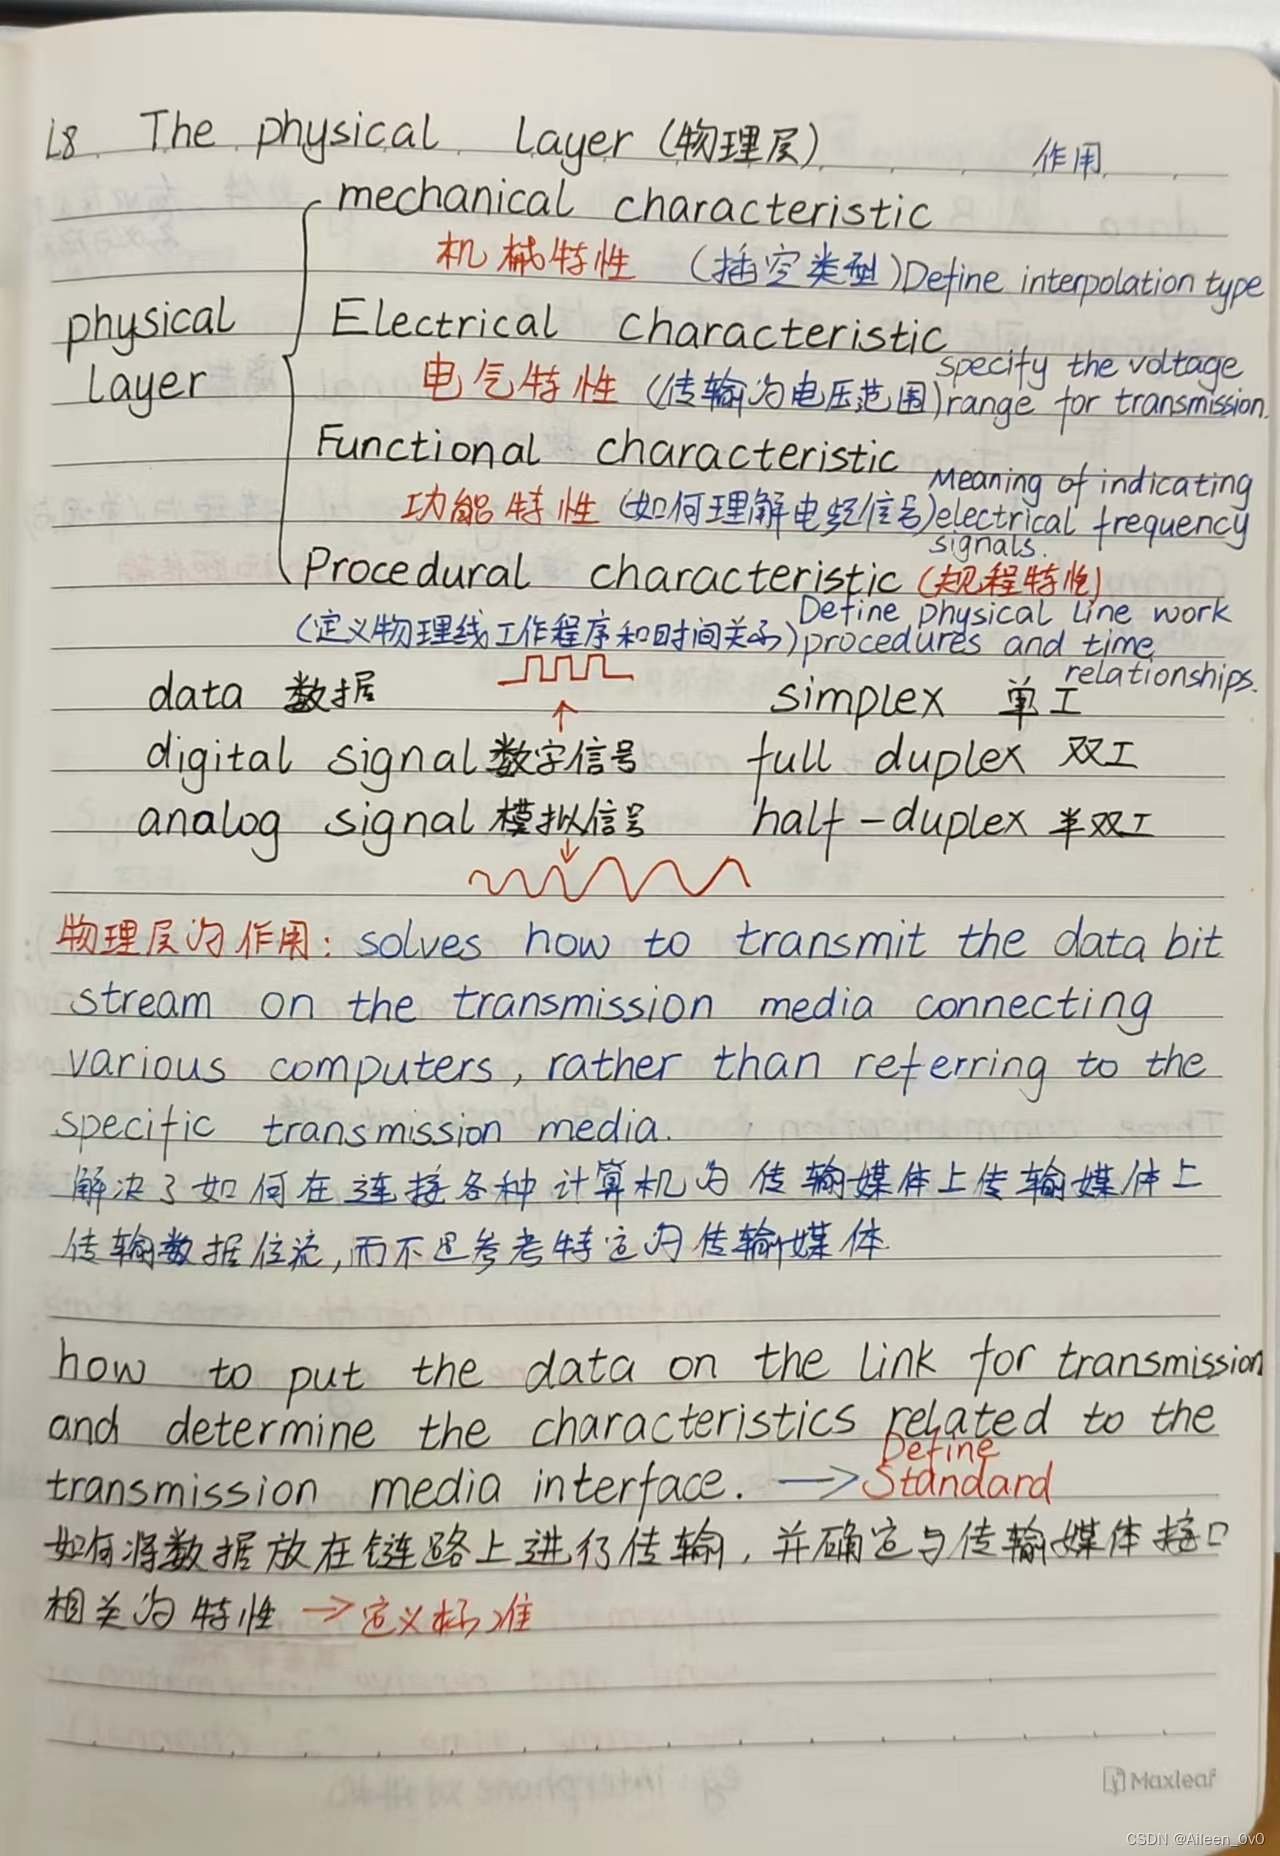 L8. The physical Layer (物理层)
作用
mechanical characteristic
机械特性 (插空类型) Define interpolation type
physical Layer
Electrical characteristic
电气特性 (传输的电压范围) specify the voltage
range for transmission.
Functional characteristic
功能特性 (如何理解电频信号) Meaning of indicating
electrical frequency
signals.
Procedural characteristic (规程特性)
(定义物理线工作程序和时间关系) Define physical line work
procedures and time
relationships.
data 数据 simplex 单工
digital signal 数字信号 full duplex 双工
analog signal 模拟信号 half-duplex 半双工
物理层的作用: solves how to transmit the data bit
stream on the transmission media connecting
various computers, rather than referring to the
specific transmission media.
解决了如何在连接各种计算机的传输媒体上传输媒体上
传输数据位流,而不是参考特定的传输媒体
how to put the data on the link for transmission
and determine the characteristics related to the
transmission media interface. → Define
Standard
如何将数据放在链路上进行传输,并确定与传输媒体接口
相关的特性 → 定义标准
Maxleaf
CSDN @Aileen_0v0